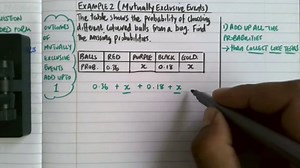 EXAMPLE 2 (MUTUALLY EXCLUSIVE EVENTS)
The table shows the probability of choosing
different coloured balls from a bag. Find
the missing probabilities.
OUTCOMES
OF
MUTUALLY
EXCLUSIVE
EVENTS
ADD UP TO
1
BALLS RED PURPLE BLACK GOLD
PROB. 0.36 x 0.18 x
0.36 + x + 0.18 + x
1) ADD UP ALL THE
PROBABILITIES
→ THEN COLLECT LIKE TERMS